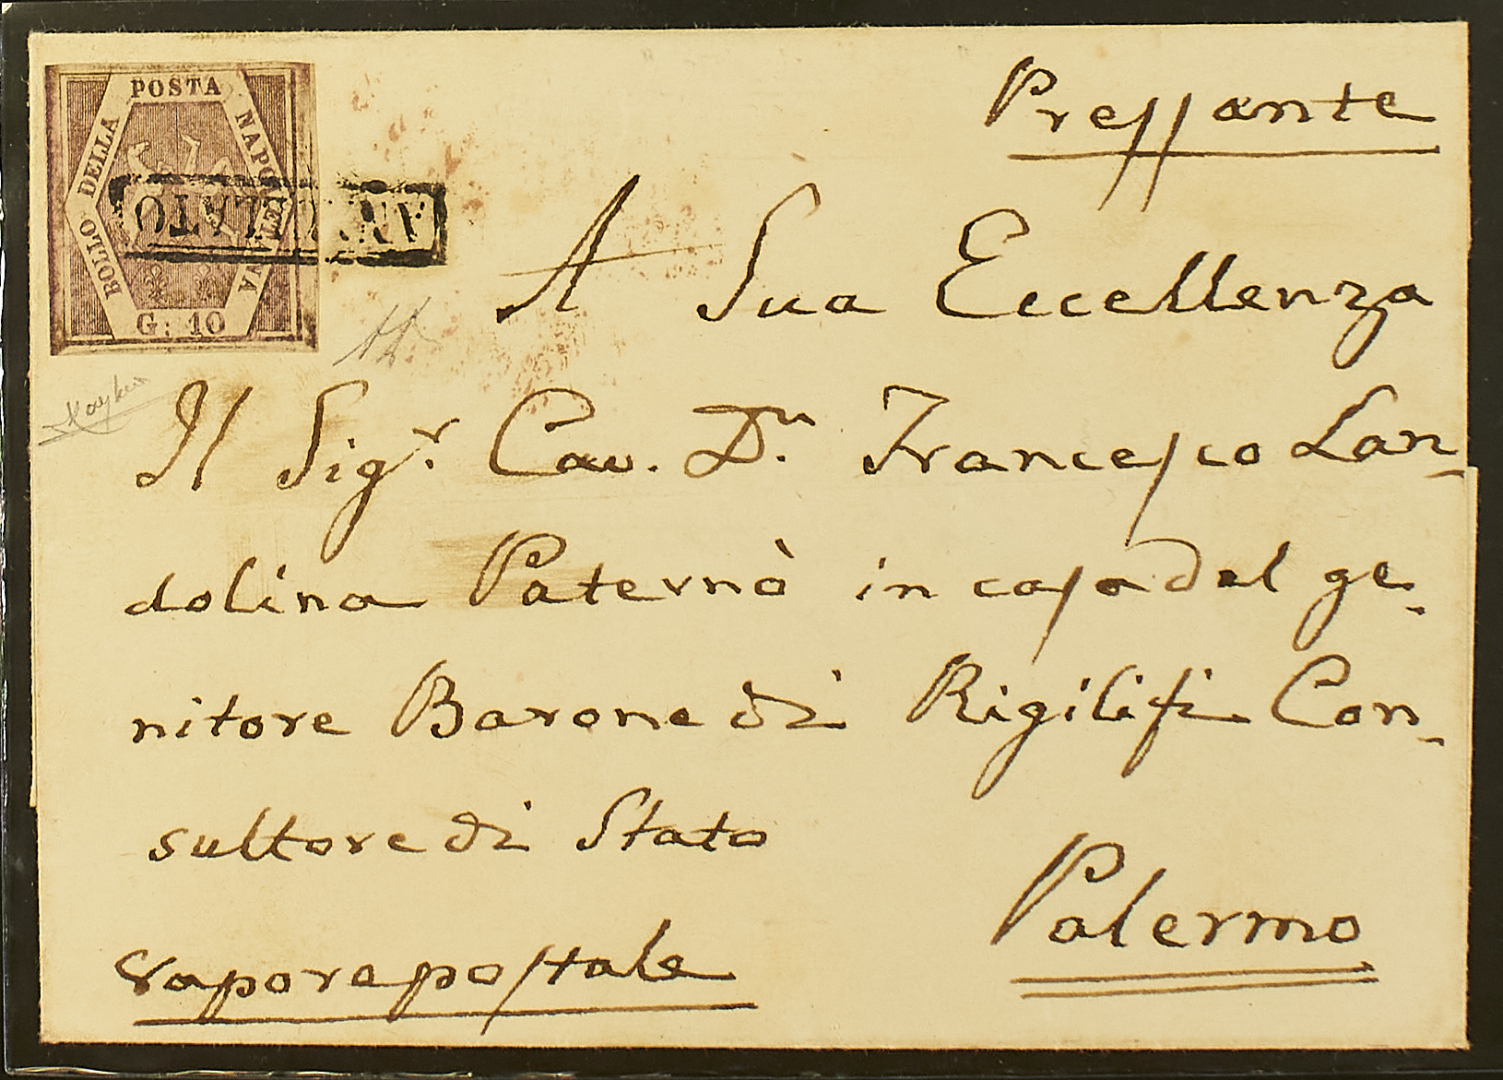 POSTA
NAPOLETANA
BOLLO DELLA
G: 10
ANNULLATO
Pressante
A Sua Eccellenza
Il Sigr. Cav. Dn. Francesco Lan-
dolina Paternò in casa del ge-
nitore Barone di Rigilifi Con-
sultore di Stato
Palermo
Vapore postale